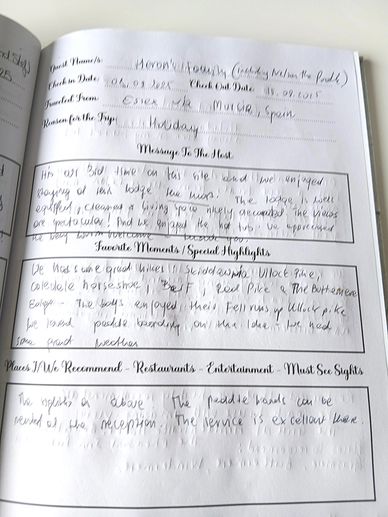 Guest Name/s: Heron's Family (including Nelson the Poodle)
Check in Date: 09.2025 Check Out Date: 09.2015
Traveled From: Essex, UK Murcia, Spain
Reason for the Trip: Holiday
Message To The Host
our 3rd time on this site and we enjoyed
staying at this lodge the most. The lodge is well
equipped, cleaned & nicely decorated. The views
are spectacular! And we enjoyed the hot tub. We appreciated
the very warm welcome
Favorite Moments / Special Highlights
We had some great hikes: Skiddaw Ullock Pike,
Coledale horseshoe, Red Pike & The Buttermere
The boys enjoyed their Fell runs up Ullock pike
We loved paddle boarding on the lake. We had
some great weather
Places I/We Recommend - Restaurants - Entertainment - Must See Sights
The above. The paddle boards can be
rented at the reception. The service is excellent there.